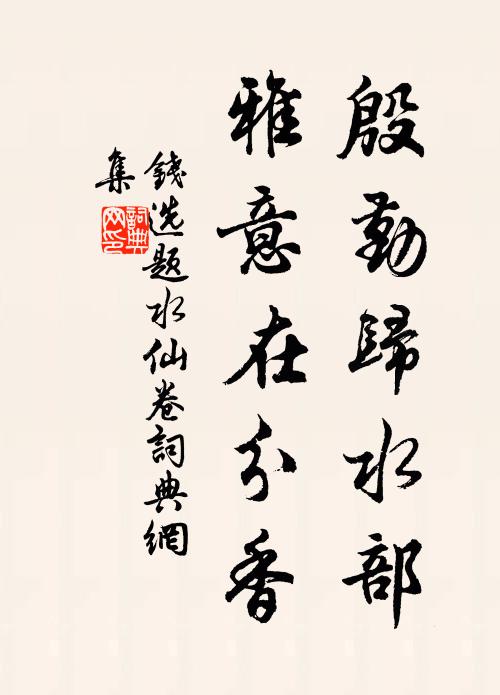 殷勤歸水部
雅意在分香
錢選題水仙卷詞典網
集
詞典網印